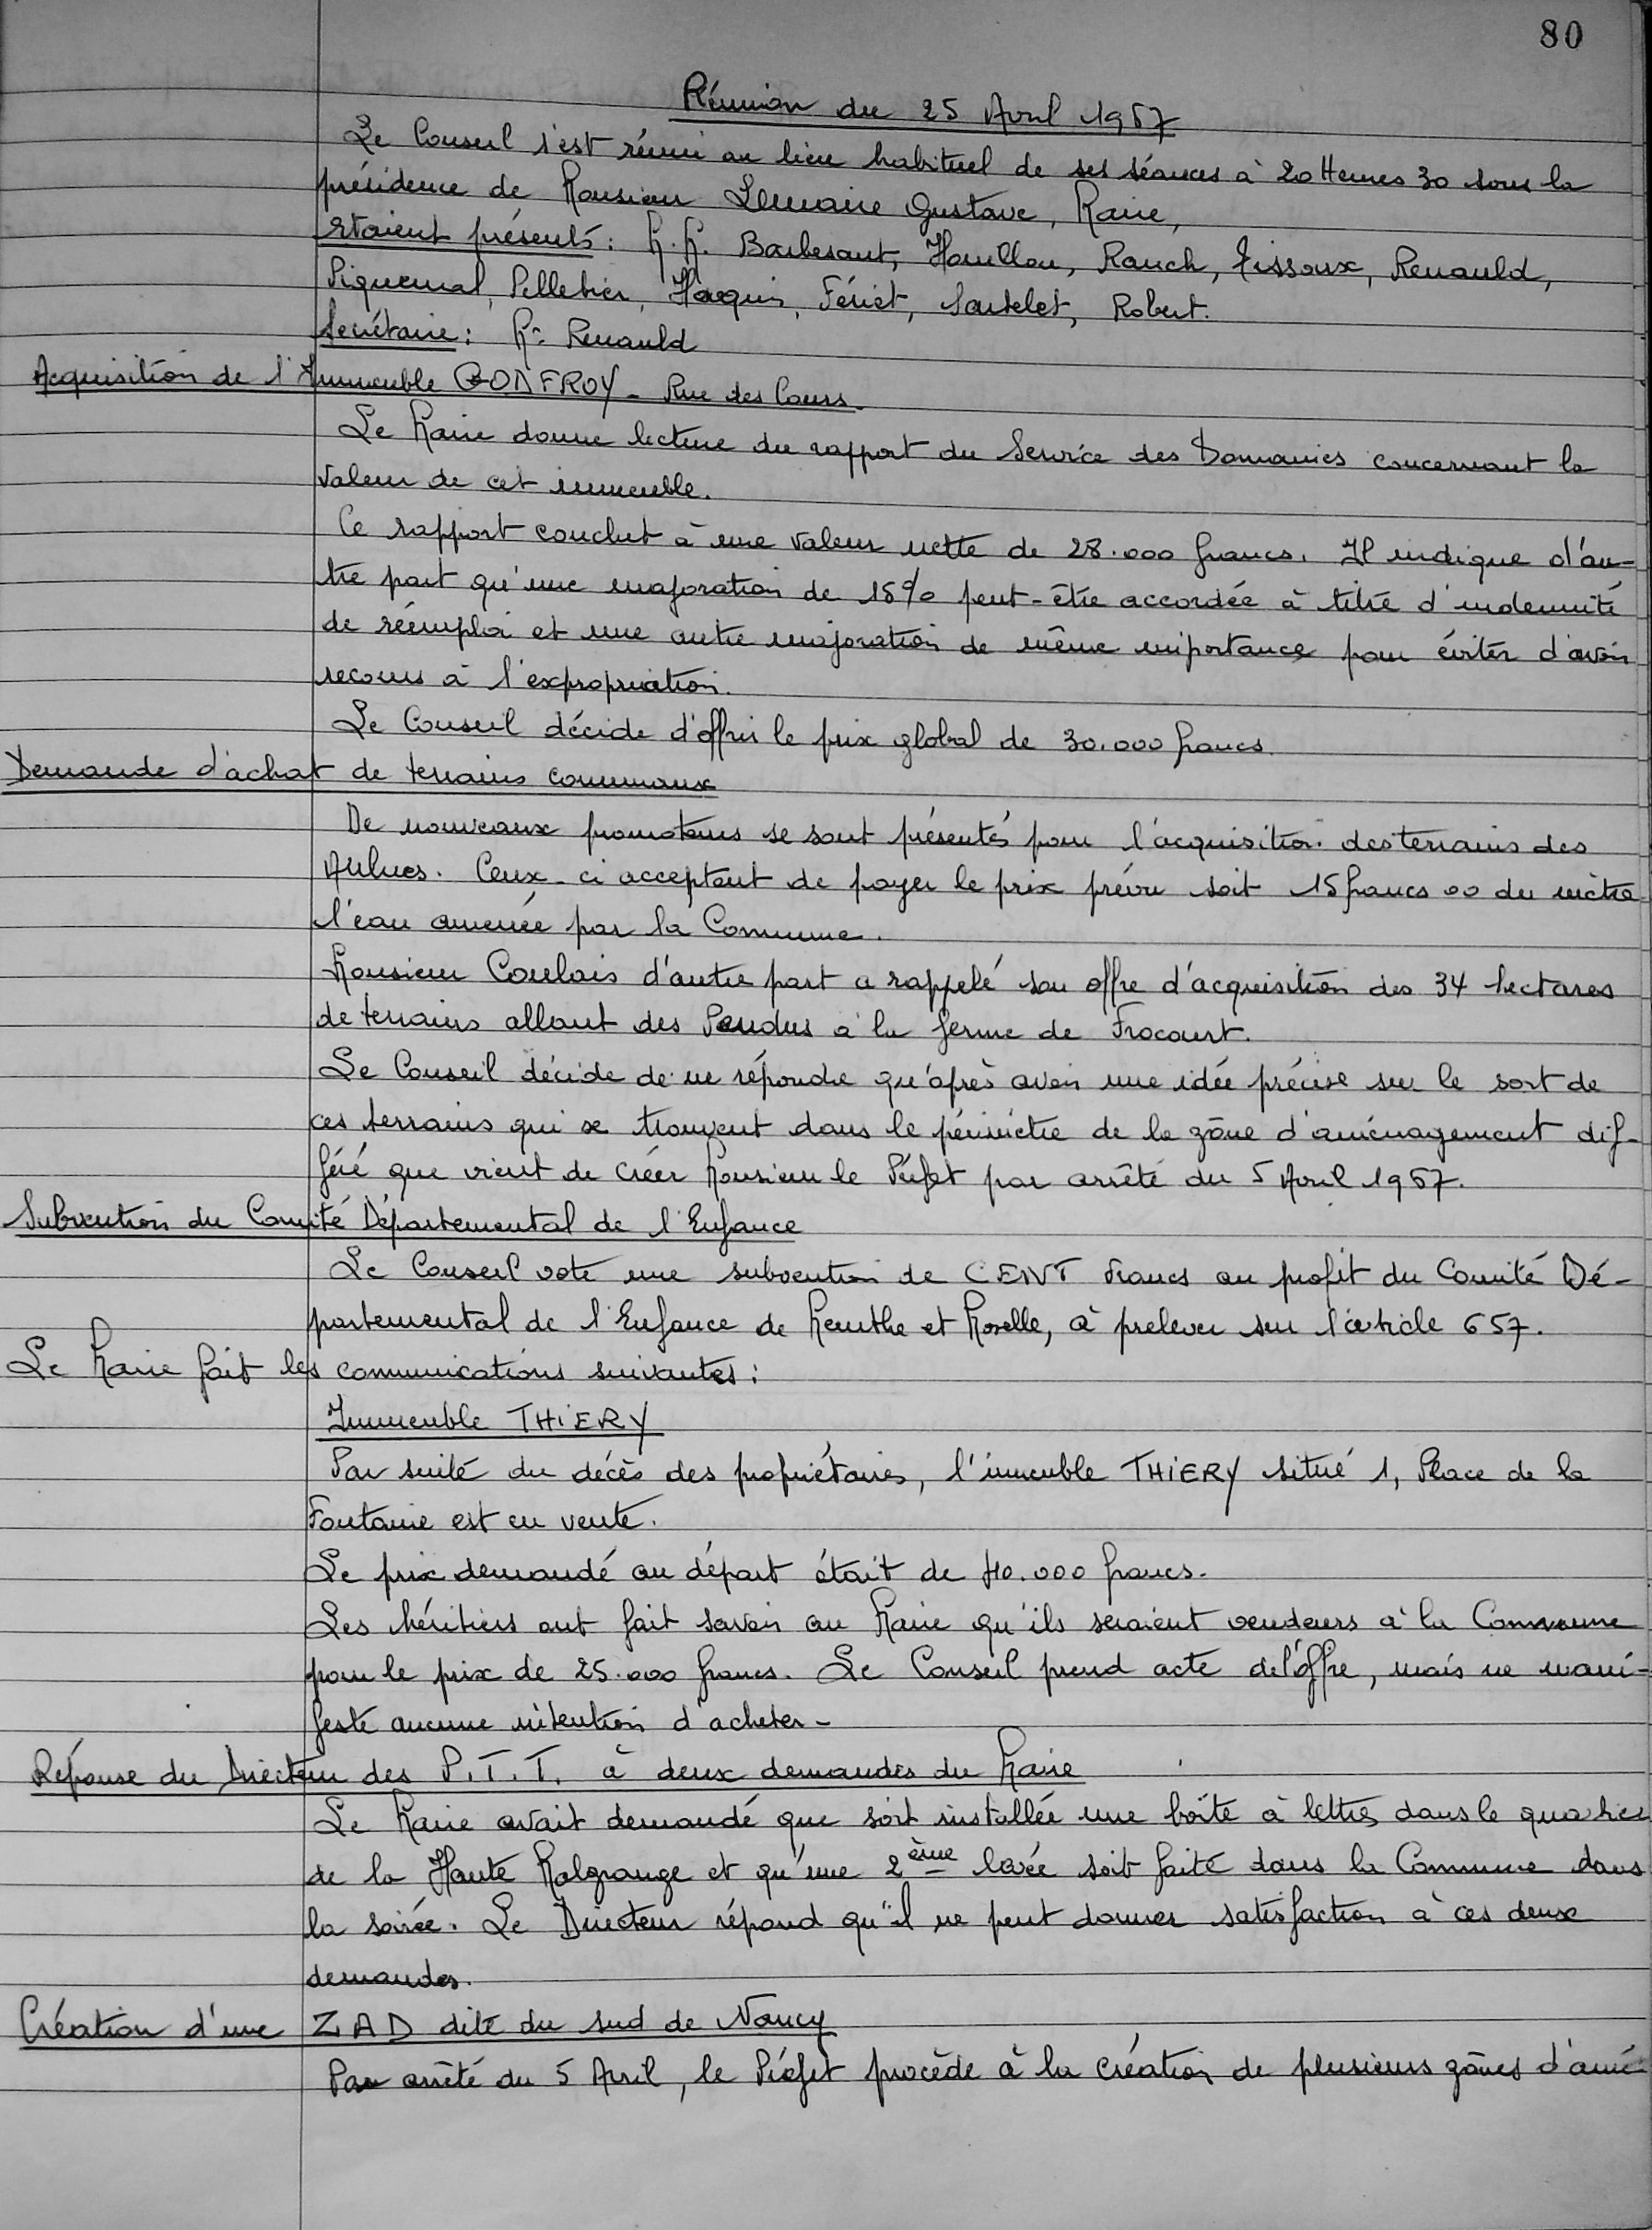 80
Réunion du 25 Avril 1967
Le Conseil s'est réuni au lieu habituel de ses séances à 20 Heures 30 sous la
présidence de Monsieur Lemaire Gustave, Maire,
Etaient présents : M.M. Barbesant, Houillon, Rauch, Tissoux, Renauld,
Piquemal, Pelletier, Hacquin, Fériet, Sautelet, Robert.
Secrétaire : Mr Renauld
Acquisition de l'Immeuble GODFROY - Rue des Cours.
Le Maire donne lecture du rapport du Service des Domaines concernant la
valeur de cet immeuble.
Ce rapport conclut à une valeur nette de 28.000 francs. Il indique d'au-
tre part qu'une majoration de 15% peut-être accordée à titre d'indemnité
de réemploi et une autre majoration de même importance pour éviter d'avoir
recours à l'expropriation.
Le Conseil décide d'offrir le prix global de 30.000 francs.
Demande d'achat de terrains communaux
De nouveaux promoteurs se sont présentés pour l'acquisition des terrains des
Aulnes. Ceux-ci acceptent de payer le prix prévu soit 15 francs 00 du mètre
l'eau amenée par la Commune.
Monsieur Coulais d'autre part a rappelé son offre d'acquisition des 34 hectares
de terrains allant des Pendus à la ferme de Frocourt.
Le Conseil décide de ne répondre qu'après avoir une idée précise sur le sort de
ces terrains qui se trouvent dans le périmètre de la zône d'aménagement dif-
féré que vient de créer Monsieur le Préfet par arrêté du 5 Avril 1967.
Subvention du Comité Départemental de l'Enfance
Le Conseil vote une subvention de CENT Francs au profit du Comité Dé-
partemental de l'Enfance de Meurthe et Moselle, à prelever sur l'article 657.
Le Maire fait les communications suivantes :
Immeuble THiERY
Par suite du décès des propriétaires, l'immeuble THiERY situé 1, Place de la
Fontaine est en vente.
Le prix demandé au départ était de 40.000 francs.
Les héritiers ont fait savoir au Maire qu'ils seraient vendeurs à la Commune
pour le prix de 25.000 francs. Le Conseil prend acte de l'offre, mais ne mani-
feste aucune intention d'acheter -
Réponse du Directeur des P.T.T. à deux demandes du Maire
Le Maire avait demandé que soit installée une boîte à lettres dans le quartier
de la Haute Malgrange et qu'une 2ème levée soit faite dans la Commune dans
la soirée. Le Directeur répond qu'il ne peut donner satisfaction à ces deux
demandes.
Création d'une ZAD dite du sud de Nancy
Par arrêté du 5 Avril, le Préfet procède à la création de plusieurs zônes d'amé-